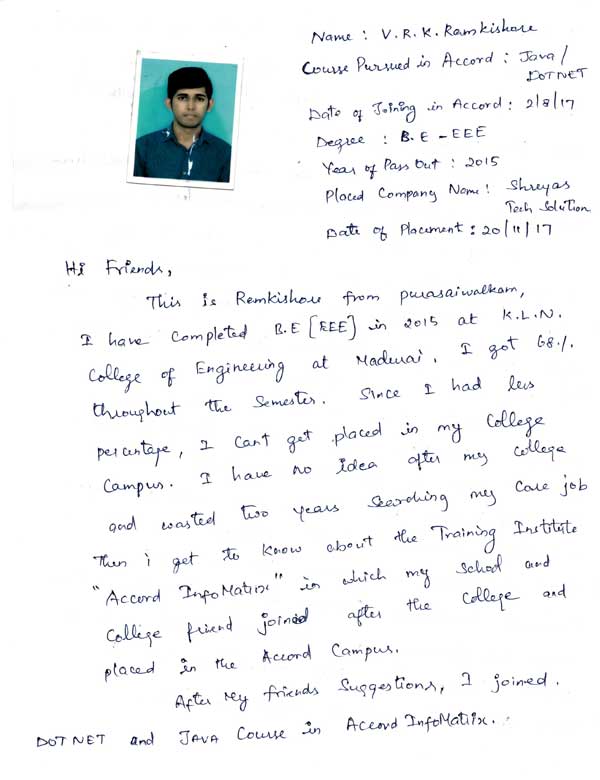 Name : V.R.K. Ramkishore
Course Pursued in Accord : Java/
DOTNET
Date of Joining in Accord : 2/8/17
Degree : B.E - EEE
Year of Pass Out : 2015
Placed Company Name : Shreyas
Tech Solution
Date of Placement : 20/11/17
Hi Friends,
This is Ramkishore from purasaiwalkam,
I have Completed B.E [EEE] in 2015 at K.L.N.
College of Engineering at Madurai. I got 68%.
throughout the Semester. Since I had less
percentage, I Can't get placed in my College
Campus. I have no idea after my college
and wasted two years Searching my Core job
Then i get to know about the Training Institute
"Accord InfoMatrix" in which my school and
College friend joined after the College and
placed in the Accord Campus.
After My friends Suggestions, I joined.
DOT NET and JAVA Course in Accord InfoMatrix.